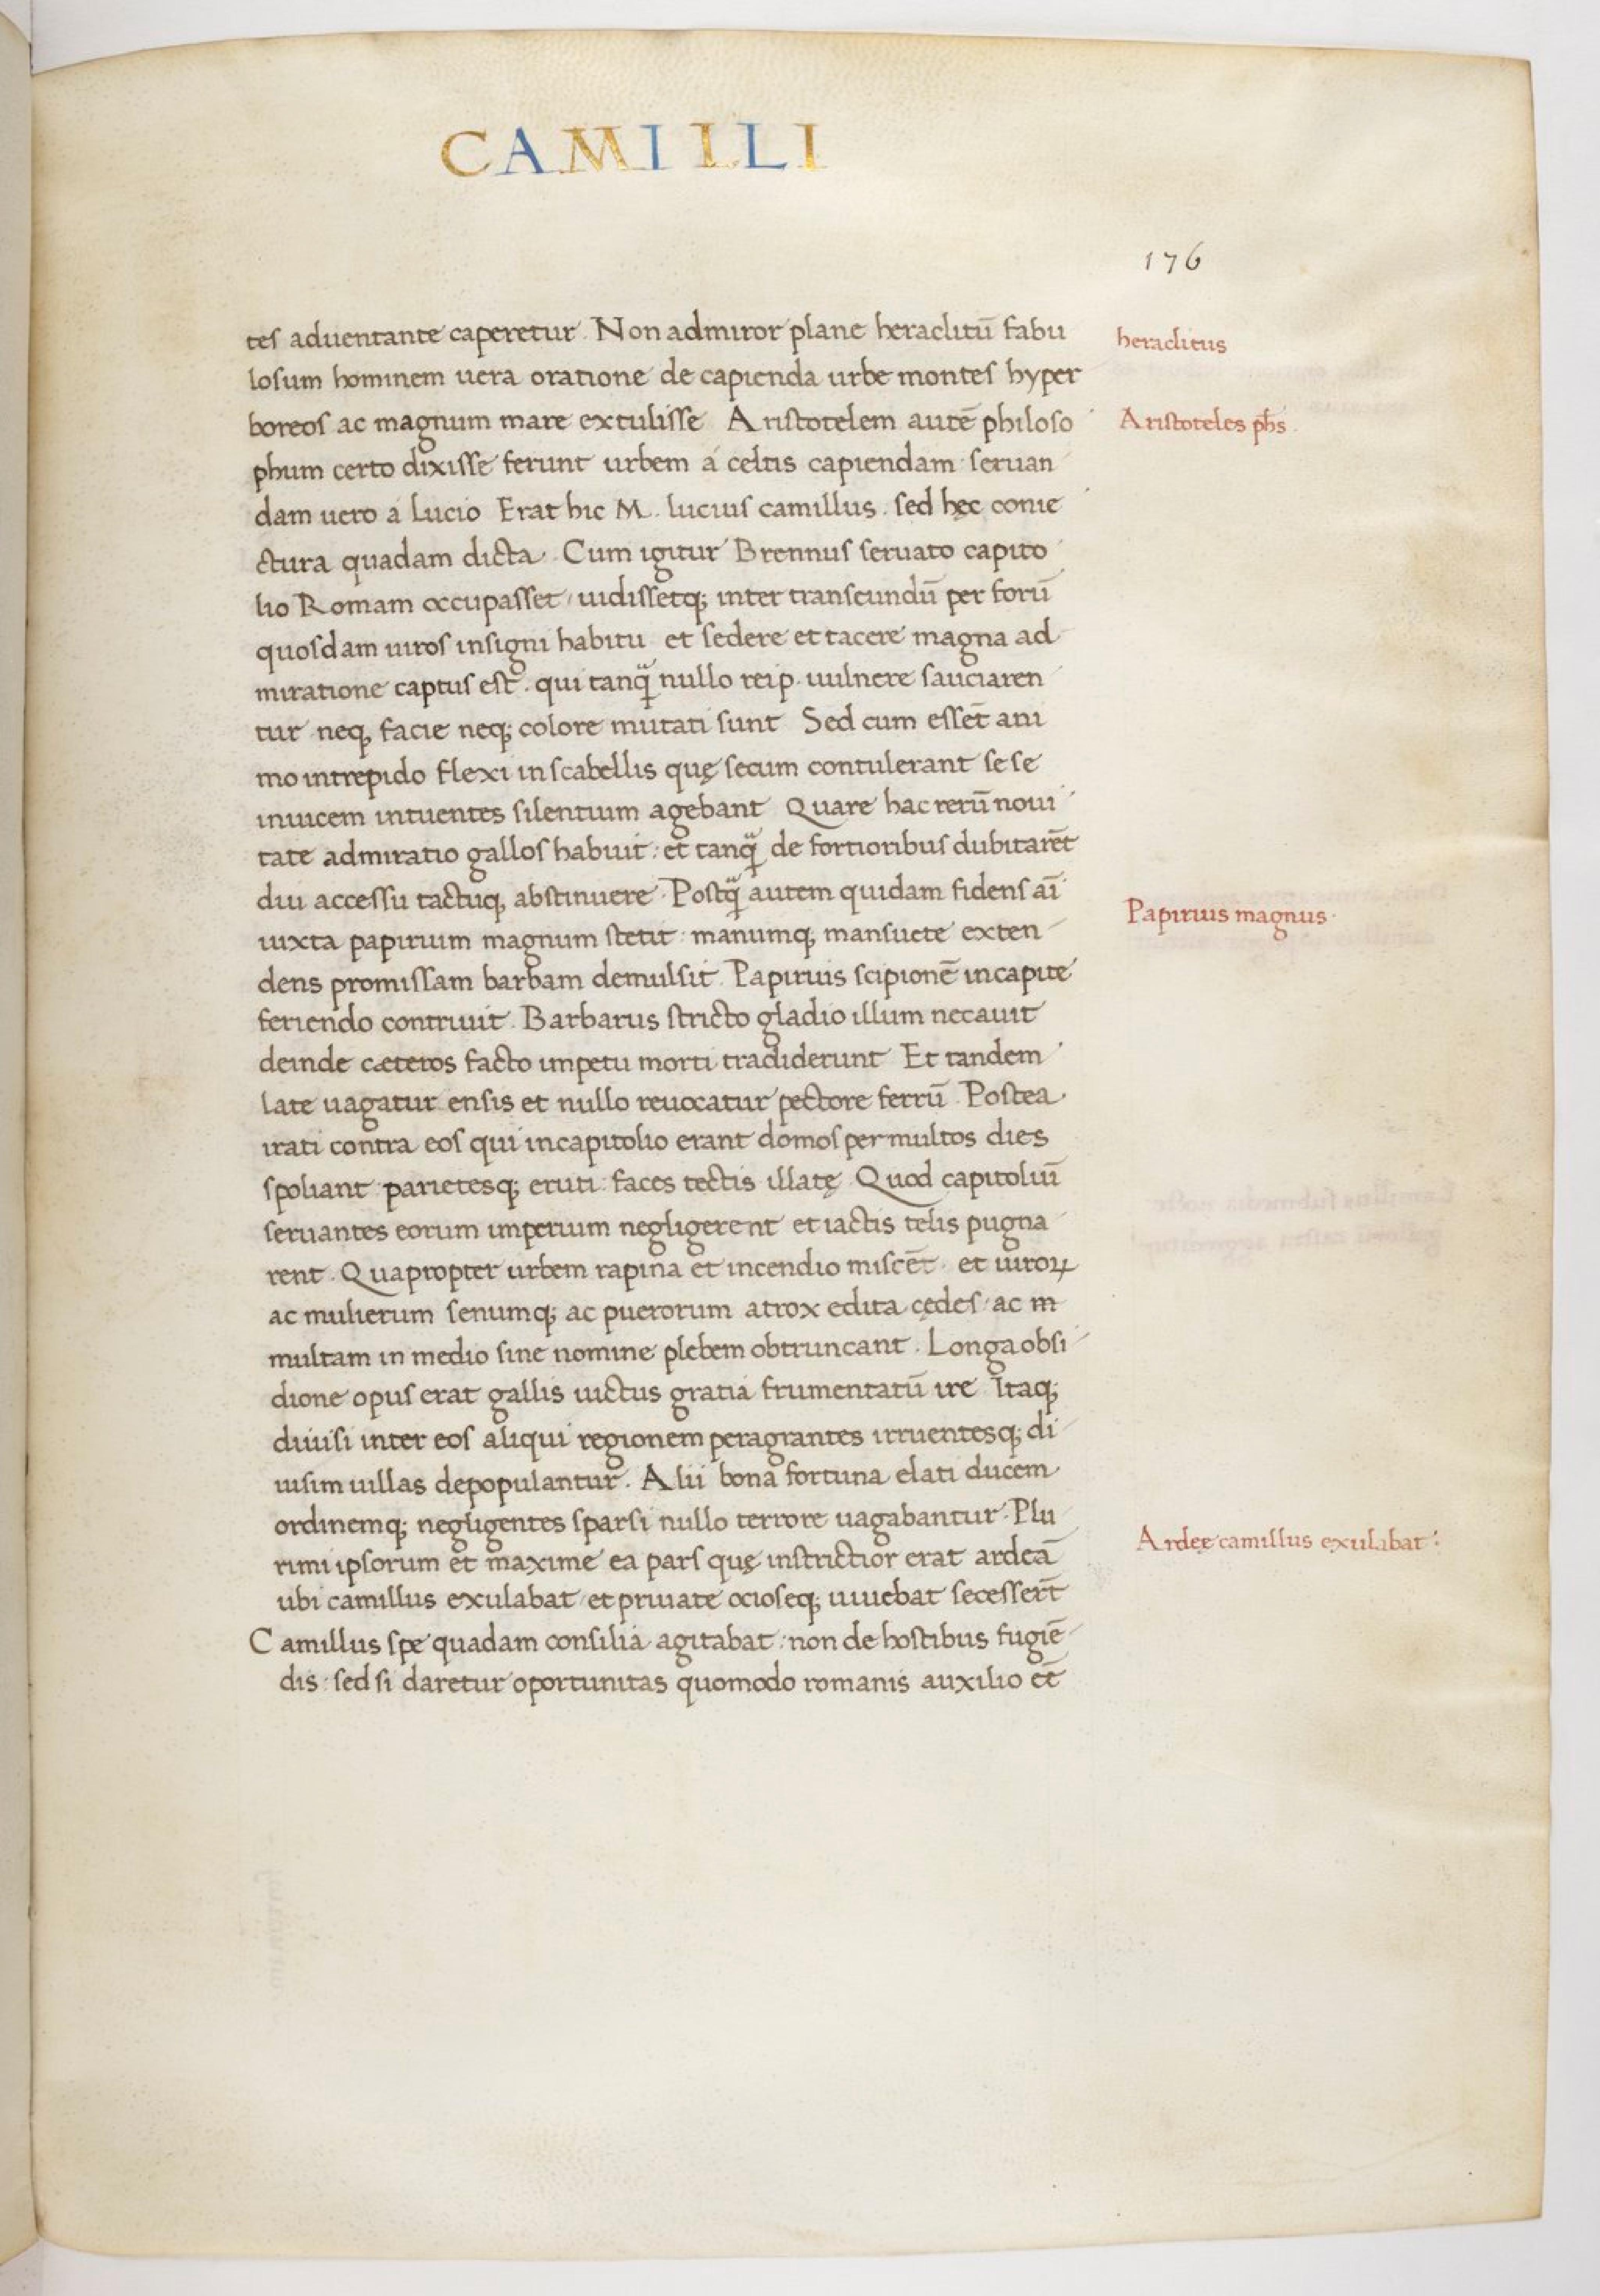 CAMILLI
176
tes aduentante caperetur. Non admiror plane heraclitū fabu
heraclitus
losum hominem uera oratione de capienda urbe montes hyper
boreos ac magnum mare extulisse. Aristotelem autē philoso
Aristoteles phs.
phum certo dixisse ferunt urbem á celtis capiendam: seruan
dam uero á Lucio. Erat hic M. lucius camillus. sed hęc conie
ctura quadam dicta. Cum igitur Brennus seruato capito
lio Romam occupasset, uidissetq; inter transeundū per forū
quosdam uiros insigni habitu et sedere et tacere magna ad
miratione captus est. qui tanq̃ nullo reip. uulnere sauciaren
tur neq; facie neq; colore mutati sunt. Sed cum essēt ani
mo intrepido flexi in scabellis quę secum contulerant se se
inuicem intuentes silentium agebant. Quare hac rerū noui
tate admiratio gallos habuit: et tanq̃ de fortioribus dubitarēt
diu accessu tactuq; abstinuere. Postq̃ autem quidam fidens aī
iuxta papirium magnum stetit: manumq; mansuete exten
Papirius magnus.
dens promissam barbam demulsit. Papirius scipionē in capite
feriendo contriuit. Barbarus stricto gladio illum necauit
deinde cæteros facto impetu morti tradiderunt. Et tandem
late uagatur ensis et nullo reuocatur pectore ferrū. Postea
irati contra eos qui in capitolio erant domos per multos dies
spoliant: parietesq; eruti: faces tectis illatę. Quod capitoliū
seruantes eorum imperium negligerent et iactis telis pugna
rent. Quapropter urbem rapina et incendio miscēt. et uiroꝝ
ac mulierum senumq; ac puerorum atrox edita cędes: ac m
multam in medio sine nomine plebem obtruncant. Longa obsi
dione opus erat gallis uictus gratia frumentatū ire. Itaq;
diuisi inter eos aliqui regionem peragrantes irruentesq; di
uisim uillas depopulantur. Alii bona fortuna elati ducem
ordinemq; negligentes sparsi nullo terrore uagabantur. Plu
rimi ipsorum et maxime ea pars quę instrictior erat ardeā
Ardeę camillus exulabat:
ubi camillus exulabat, et priuate ocioseq; uiuebat secesserт̄
Camillus spe quadam consilia agitabat: non de hostibus fugiē
dis: sed si daretur oportunitas quomodo romanis auxilio eēt